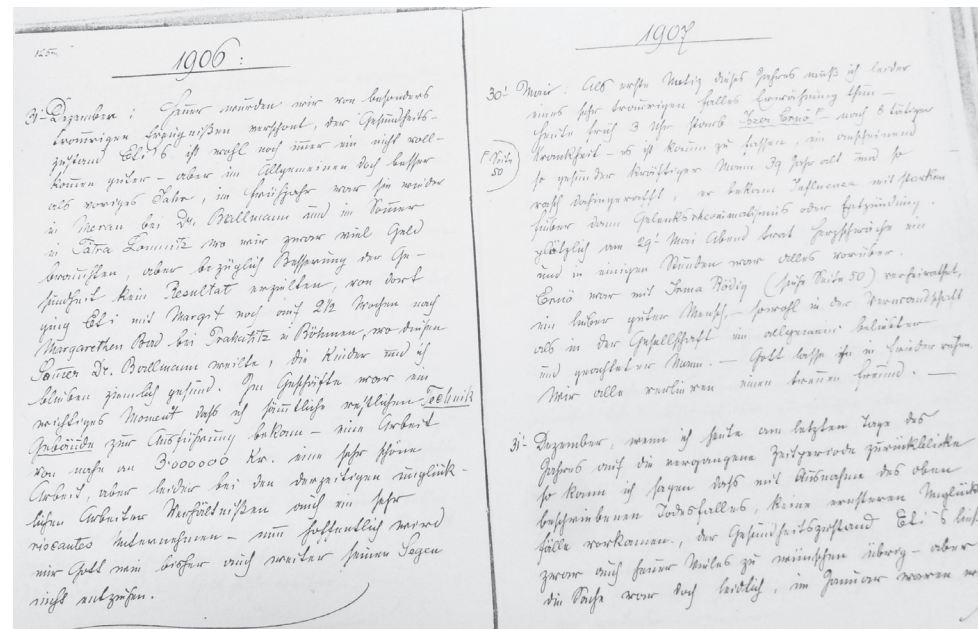 125.
1906:
31t Dezember: Heuer wurden wir von besonders
traurigen Ereignißen verschont, der Gesundheits-
zustand Eti's ist wohl noch immer ein nicht voll-
kommen guter – aber im Allgemeinen doch besser
als voriges Jahr, im Frühjahr war sie wieder
in Meran bei Dr. Ballmann und im Sommer
in Tátra Lomnitz wo wir zwar viel Geld
brauchten, aber bezüglich Besserung der Ge-
sundheit kein Resultat erzielten, von dort
ging Eti mit Margit noch auf 2 1/2 Wochen nach
Margarethen Bad bei Prakatitz in Böhmen, wo diesen
Sommer Dr. Ballmann weilte, die Kinder und ich
blieben ziemlich gesund. Im Geschäfte war ein
wichtiges Moment daß ich sämtliche restlichen Technik
Gebäude zur Ausführung bekam – eine Arbeit
von nahe an 3·000000 Kr. eine sehr schöne
Arbeit, aber leider bei den derzeitigen unglück-
lichen Arbeiter Verhältnißen auch ein sehr
riscantes Unternehmen – nun hoffentlich wird
mir Gott wie bisher auch weiter seinen Segen
nicht entziehen.
1907
30t Mai: Als erste Notiz dieses Jahres muß ich leider
eines sehr traurigen Falles Erwähnung thun –
heute früh 3 Uhr starb Ernö nach 8 tägiger
Seite
50
Krankheit – es ist kaum zu fassen, ein anscheinend
so gesunder kräftiger Mann 39 Jahr alt und so
rasch dahingerafft, er bekam Influenza mit starkem
Fieber dann oder Entzündung.
plötzlich am 29t Mai Abend trat Herzschwäche ein
und in einigen Stunden war alles vorüber.
Ernö war mit Irma Rödig (siehe Seite 50) verheirathet,
ein lieber guter Mensch, – sowohl in der Verwandschaft
als in der Gesellschaft ein allgemein beliebter
und geachteter Mann. – Gott lasse ihn in Frieder ruhen
Wir alle verlieren einen treuen Freund. –
31t Dezember, wenn ich heute am letzten Tage des
Jahres auf die vergangene Zeitperiode zurückblicke
so kann ich sagen daß mit Ausnahme des oben
beschriebenen Todesfalles, keine ernsteren Unglücks
fälle vorkamen, der Gesundheitszustand Eti's ließ
zwar auch heuer Vieles zu wünschen übrig – aber
die Sache war doch leidlich, im Januar waren